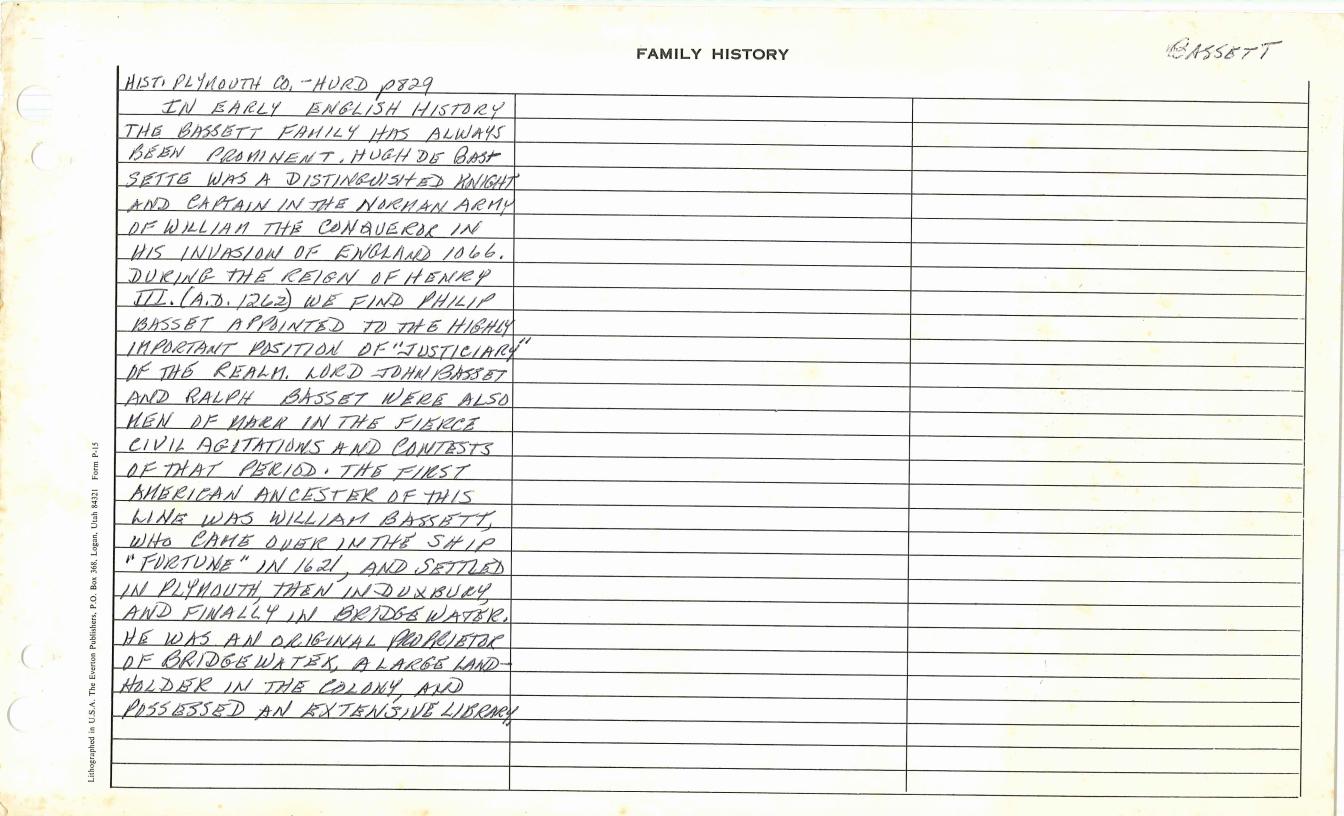 FAMILY HISTORY
BASSETT
HIST. PLYMOUTH CO. - HURD p829
IN EARLY ENGLISH HISTORY
THE BASSETT FAMILY HAS ALWAYS
BEEN PROMINENT. HUGH DE BAS-
SETTE WAS A DISTINGUISHED KNIGHT
AND CAPTAIN IN THE NORMAN ARMY
OF WILLIAM THE CONQUEROR IN
HIS INVASION OF ENGLAND 1066.
DURING THE REIGN OF HENRY
III. (A.D. 1262) WE FIND PHILIP
BASSET APPOINTED TO THE HIGHLY
IMPORTANT POSITION OF "JUSTICIARY"
OF THE REALM. LORD JOHN BASSET
AND RALPH BASSET WERE ALSO
MEN OF MARK IN THE FIERCE
CIVIL AGITATIONS AND CONTESTS
OF THAT PERIOD. THE FIRST
AMERICAN ANCESTER OF THIS
LINE WAS WILLIAM BASSETT,
WHO CAME OVER IN THE SHIP
"FORTUNE" IN 1621, AND SETTLED
IN PLYMOUTH, THEN IN DUXBURY,
AND FINALLY IN BRIDGEWATER.
HE WAS AN ORIGINAL PROPRIETOR
OF BRIDGEWATER, A LARGE LAND-
HOLDER IN THE COLONY, AND
POSSESSED AN EXTENSIVE LIBRARY.
Lithographed in U.S.A. The Everton Publishers, P.O. Box 368, Logan, Utah 84321 Form P-15